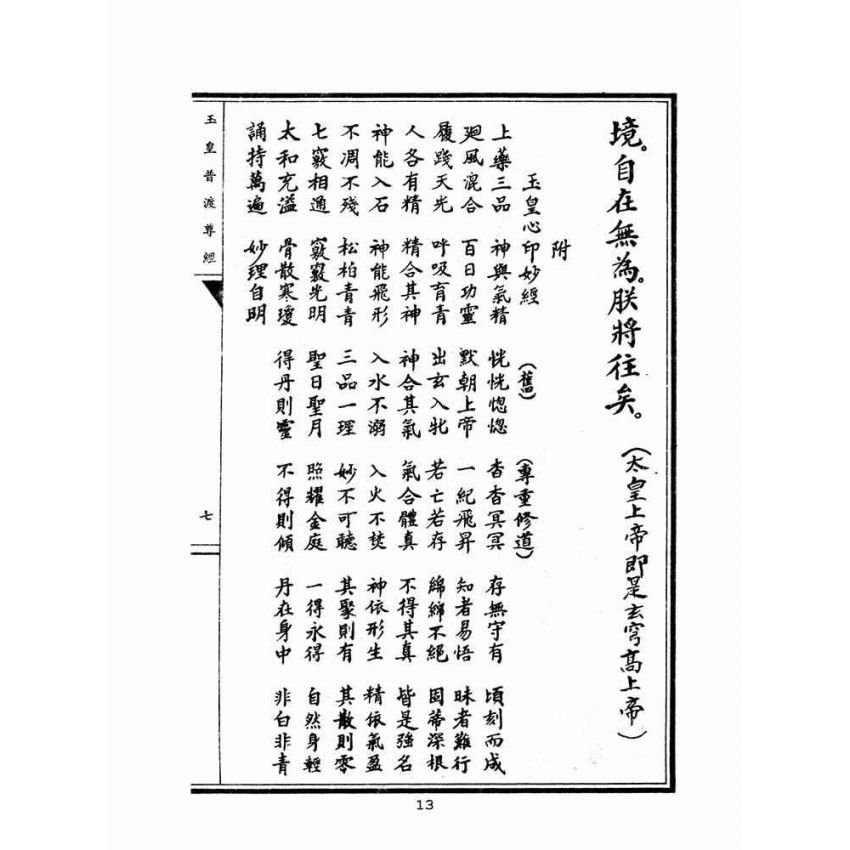 境。自在無為。朕將往矣。（太皇上帝即是玄穹高上帝）
附
玉皇心印妙經（舊）（專重修道）
上藥三品 神與氣精 恍恍惚惚 杳杳冥冥 存無守有 頃刻而成
廻風混合 百日功靈 默朝上帝 一紀飛昇 知者易悟 昧者難行
履踐天光 呼吸育青 出玄入牝 若亡若存 綿綿不絕 固蒂深根
人各有精 精合其神 神合其氣 氣合體真 不得其真 皆是強名
神能入石 神能飛形 入水不溺 入火不焚 神依形生 精依氣盈
不凋不殘 松柏青青 三品一理 妙不可聽 其聚則有 其散則零
七竅相通 竅竅光明 聖日聖月 照耀金庭 一得永得 自然身輕
太和充溢 骨散寒瓊 得丹則靈 不得則傾 丹在身中 非白非青
誦持萬遍 妙理自明
玉皇普渡尊經
七
13